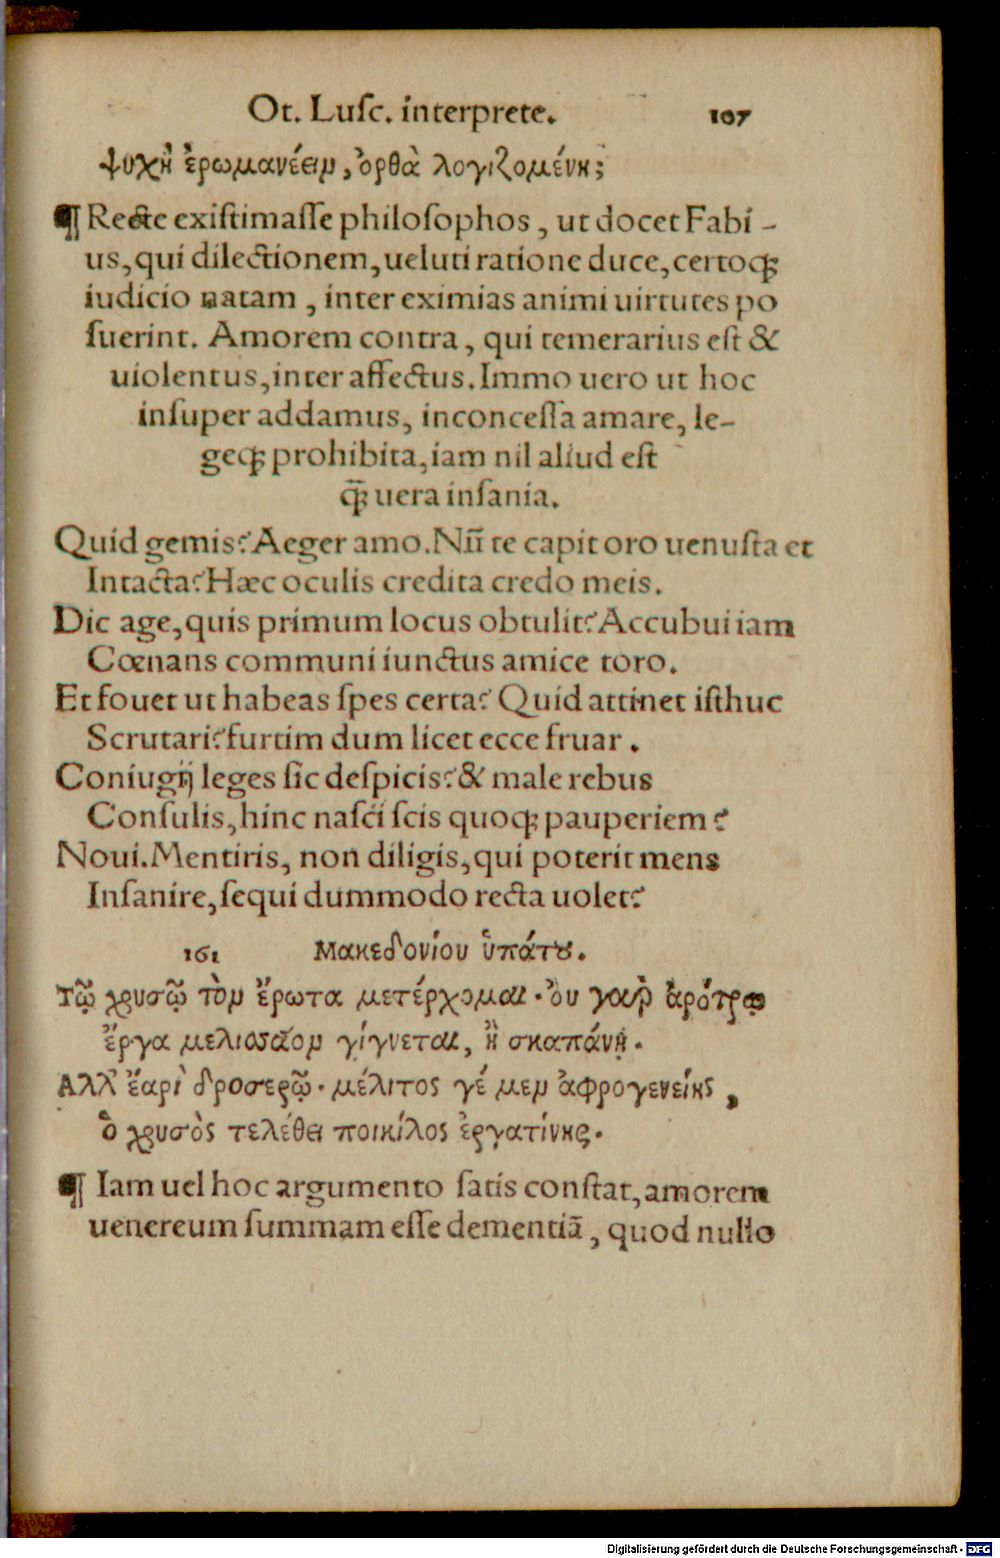 Ot. Luſc. interprete. 107
ψυχὴ ἐρωμανέειν, ὀρθὰ λογιζομένη;
¶ Recte exiſtimaſſe philoſophos, ut docet Fabi-
us, qui dilectionem, ueluti ratione duce, certoqꝫ
iudicio natam, inter eximias animi uirtutes po
ſuerint. Amorem contra, qui temerarius eſt &
uiolentus, inter affectus. Immo uero ut hoc
inſuper addamus, inconceſſa amare, le-
geqꝫ prohibita, iam nil aliud eſt
q̃ꝫ uera inſania.
Quid gemis? Aeger amo. Nū te capit oro uenuſta et
Intacta? Hæc oculis credita credo meis.
Dic age, quis primum locus obtulit? Accubui iam
Cœnans communi iunctus amice toro.
Et fouet ut habeas ſpes certa? Quid attinet iſthuc
Scrutari? furtim dum licet ecce fruar.
Coniugij leges ſic deſpicis? & male rebus
Conſulis, hinc naſci ſcis quoqꝫ pauperiem?
Noui. Mentiris, non diligis, qui poterit mens
Inſanire, ſequi dummodo recta uolet?
161 Μακεδονίου ὑπάτȣ.
Τῷ χρυσῷ τὸν ἔρωτα μετέρχομαι· ὀυ γαρ ἀρότρῳ
ἔργα μελιοσάον γίγνεται, ἢ σκαπάνῃ.
Αλλ' ἔαρι δροσερῷ· μέλιτος γέ μεν ἀφρογενείης,
ὁ χρυσὸς τελέθει ποικίλος ἐργατίνης.
¶ Iam uel hoc argumento ſatis conſtat, amorem
uenereum ſummam eſſe dementiã, quod nullo
Digitalisierung gefördert durch die Deutsche Forschungsgemeinschaft - DFG